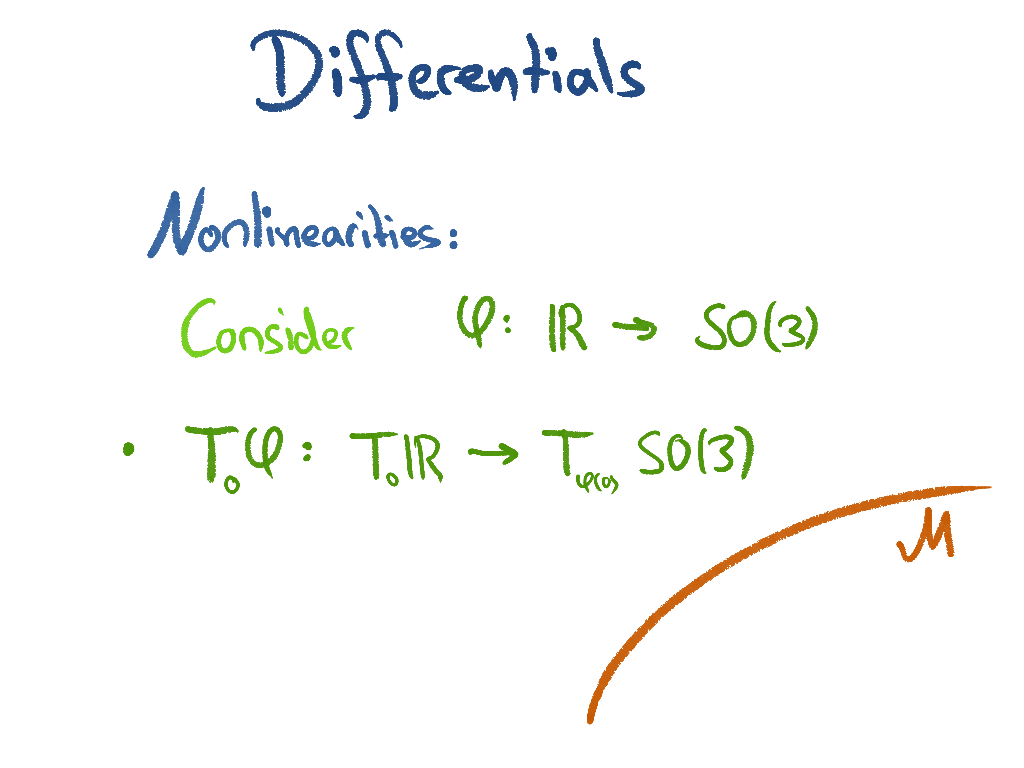 Differentials
Nonlinearities:
Consider φ: ℝ → SO(3)
• T₀φ: T₀ℝ → T_φ(0) SO(3)
M